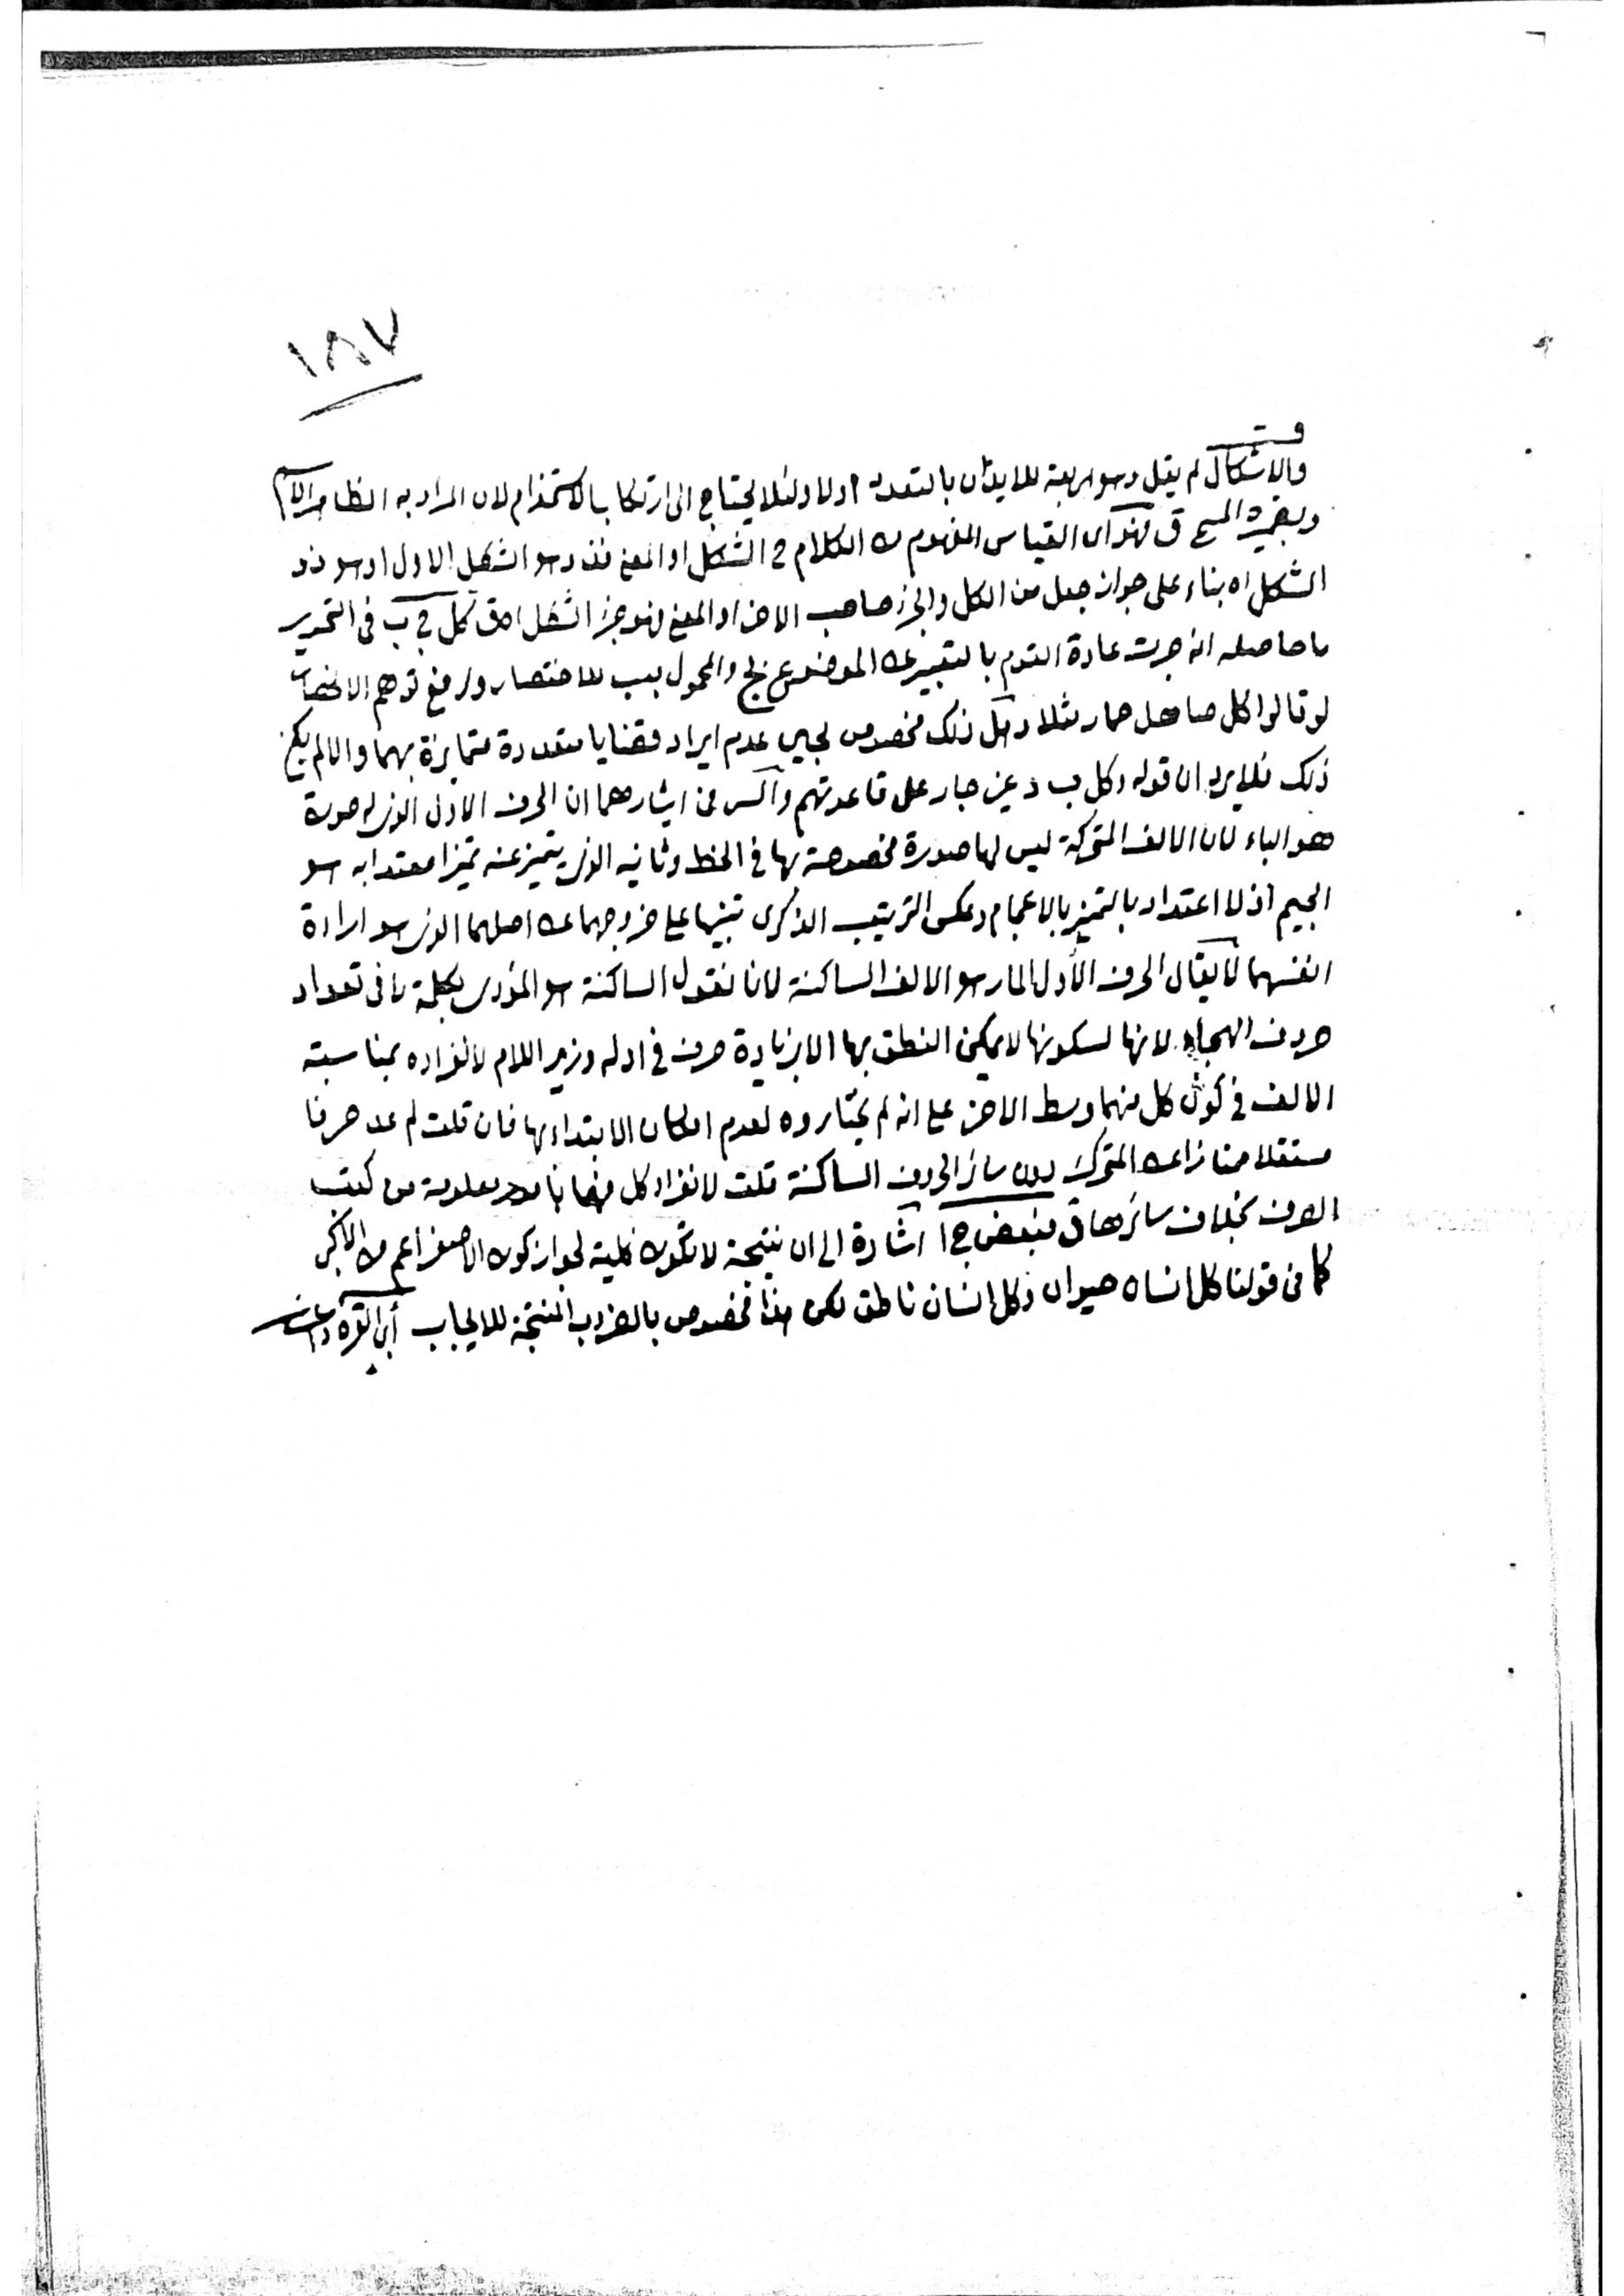 ١٨٧
ق
والاشكال لم يقل وهو اربعة للايذان بالتعدد اولا ولئلا يحتاج الى ارتكاب الاستخذام لان المراد به
ق فهو اى القياس المفهوم من الكلام فى الشكل او المعنى فذو وهو الشكل الاول او هو ذو
الشكل اه بناء على جواز جعل من الكل والجزء صاحب الاخر او المعنى فهو جزء الشكل اه ق كل ج ب فى
ما حاصله انه جرت عادة القوم بالتعبير عن الموضوع بج والمحمول بب للاختصار ورفع توهم الانحصار
لو قالوا كل صاهل حمار مثلا وكل ذلك مخصوص بحين عدم ايراد قضايا متعددة متمايزة بهما والا لم يكن
ذلك فلا يرد ان قوله وكل ب د غير جار على قاعدتهم والسر فى ايثارهما ان الحرف الاول الذى له صورة
هو الباء لان الالف المتحركة ليس لها صورة مخصوصة بها فى الخط وثانيه الذى يتميز عنه تميزا معتدا به هو
الجيم اذ لا اعتداد بالتميز بالاعجام وعكس الترتيب الذكرى تنبيها على خروجهما عن اصلهما الذى هو ارادة
انفسهما لا يقال الحرف الأول المار هو الالف الساكنة لانا نقول الساكنة هو المؤدى بكلمة لا فى تعداد
حروف الهجاء لانها لسكونها لا يمكن النطق بها الا بزيادة حرف فى اوله وزيد اللام لانفراده بمناسبته
الالف فى كون كل منهما وسط الاخر على انه لم يختاروه لعدم امكان الابتداء بها فان قلت لم عد حرفا
مستقلا ممتازا عن المتحرك دون سائر الحروف الساكنة قلت لانفراد كل منهما بامور معلومة من كتب
الصرف بخلاف سائرها ق فبعض ج ا اشارة الى ان نتيجته لا تكون كلية لجواز كون الاصغر اعم من الاكبر
كما فى قولنا كل انسان حيوان وكل انسان ناطق لكن هذا مخصوص بالضروب المنتجة للايجاب